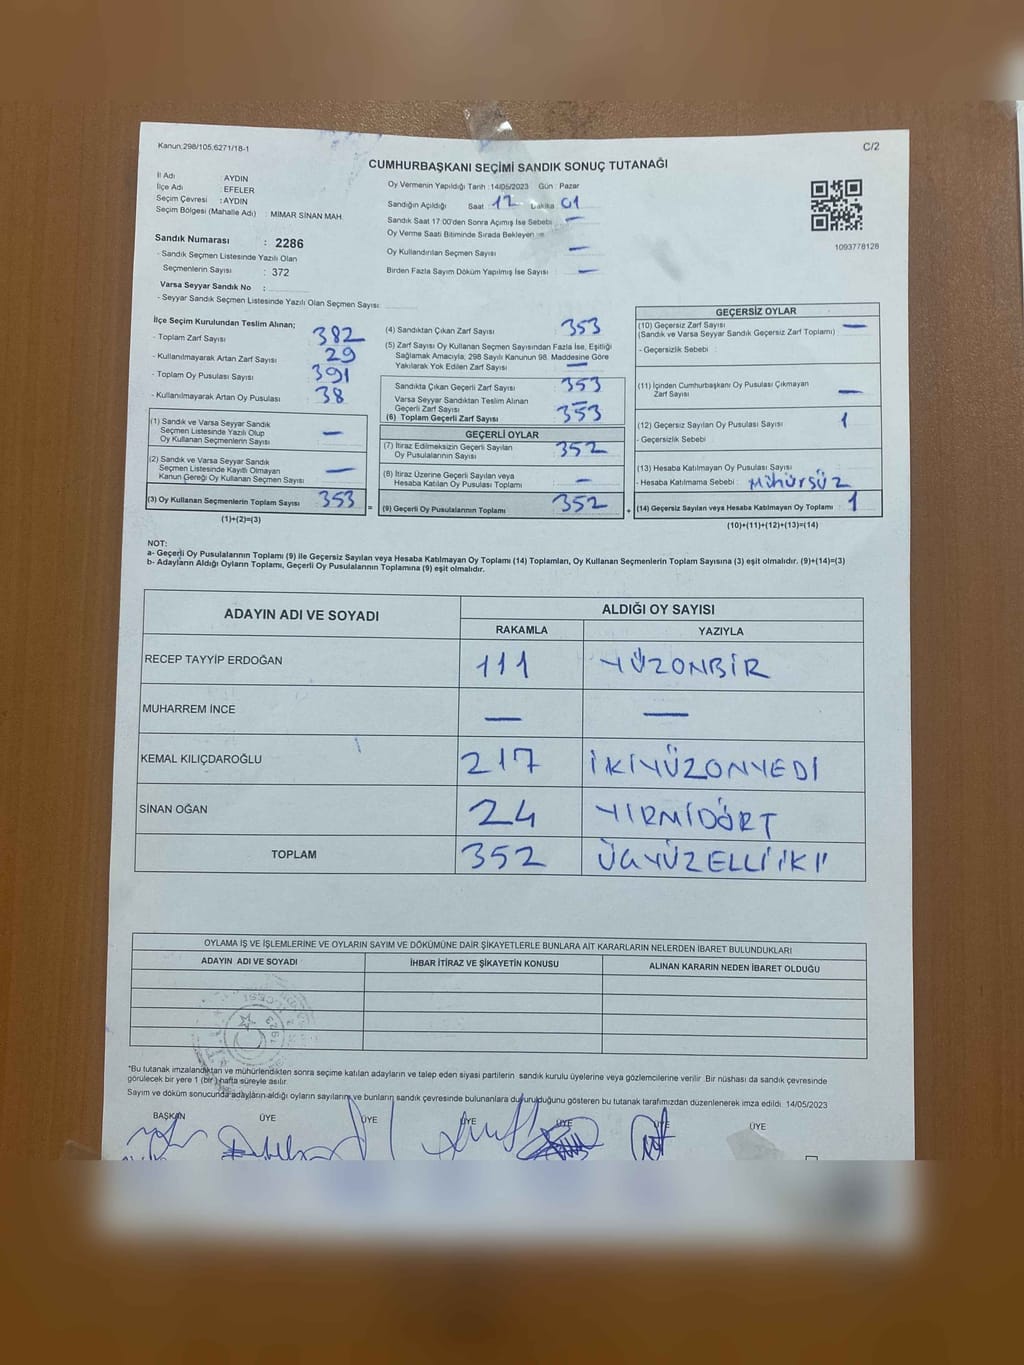 Kanun:298/105.6271/18-1
C/2
CUMHURBAŞKANI SEÇİMİ SANDIK SONUÇ TUTANAĞI
İl Adı : AYDIN
İlçe Adı : EFELER
Seçim Çevresi : AYDIN
Seçim Bölgesi (Mahalle Adı) : MİMAR SİNAN MAH.
Sandık Numarası : 2286
- Sandık Seçmen Listesinde Yazılı Olan
Seçmenlerin Sayısı : 372
Varsa Seyyar Sandık No :
- Seyyar Sandık Seçmen Listesinde Yazılı Olan Seçmen Sayısı:
Oy Vermenin Yapıldığı Tarih :14/05/2023 Gün : Pazar
Sandığın Açıldığı Saat 17 Dakika 01
Sandık Saat 17:00'den Sonra Açımış İse Sebebi —
Oy Verme Saati Bitiminde Sırada Bekleyen ve
Oy Kullandırılan Seçmen Sayısı —
Birden Fazla Sayım Döküm Yapılmış İse Sayısı —
1093778128
İlçe Seçim Kurulundan Teslim Alınan;
- Toplam Zarf Sayısı 382
- Kullanılmayarak Artan Zarf Sayısı 29
- Toplam Oy Pusulası Sayısı 391
- Kullanılmayarak Artan Oy Pusulası 38
(1) Sandık ve Varsa Seyyar Sandık
Seçmen Listesinde Yazılı Olup
Oy Kullanan Seçmenlerin Sayısı —
(2) Sandık ve Varsa Seyyar Sandık
Seçmen Listesinde Kayıtlı Olmayan
Kanun Gereği Oy Kullanan Seçmen Sayısı —
(3) Oy Kullanan Seçmenlerin Toplam Sayısı 353 =
(1)+(2)=(3)
(4) Sandıktan Çıkan Zarf Sayısı 353
(5) Zarf Sayısı Oy Kullanan Seçmen Sayısından Fazla İse, Eşitliği
Sağlamak Amacıyla, 298 Sayılı Kanunun 98. Maddesine Göre
Yakılarak Yok Edilen Zarf Sayısı —
Sandıkta Çıkan Geçerli Zarf Sayısı 353
Varsa Seyyar Sandıktan Teslim Alınan
Geçerli Zarf Sayısı —
(6) Toplam Geçerli Zarf Sayısı 353
GEÇERLİ OYLAR
(7) İtiraz Edilmeksizin Geçerli Sayılan
Oy Pusulalarının Sayısı 352
(8) İtiraz Üzerine Geçerli Sayılan veya
Hesaba Katılan Oy Pusulası Toplamı —
(9) Geçerli Oy Pusulalarının Toplamı 352 +
GEÇERSİZ OYLAR
(10) Geçersiz Zarf Sayısı —
(Sandık ve Varsa Seyyar Sandık Geçersiz Zarf Toplamı)
- Geçersizlik Sebebi :
(11) İçinden Cumhurbaşkanı Oy Pusulası Çıkmayan
Zarf Sayısı —
(12) Geçersiz Sayılan Oy Pusulası Sayısı 1
- Geçersizlik Sebebi
(13) Hesaba Katılmayan Oy Pusulası Sayısı
- Hesaba Katılmama Sebebi : MÜHÜRSÜZ
(14) Geçersiz Sayılan veya Hesaba Katılmayan Oy Toplamı 1
(10)+(11)+(12)+(13)=(14)
NOT:
a- Geçerli Oy Pusulalarının Toplamı (9) ile Geçersiz Sayılan veya Hesaba Katılmayan Oy Toplamı (14) Toplamları, Oy Kullanan Seçmenlerin Toplam Sayısına (3) eşit olmalıdır. (9)+(14)=(3)
b- Adayların Aldığı Oyların Toplamı, Geçerli Oy Pusulalarının Toplamına (9) eşit olmalıdır.
ADAYIN ADI VE SOYADI ALDIĞI OY SAYISI
RAKAMLA YAZIYLA
RECEP TAYYİP ERDOĞAN 111 YÜZONBİR
MUHARREM İNCE — —
KEMAL KILIÇDAROĞLU 217 İKİYÜZONYEDİ
SİNAN OĞAN 24 YİRMİDÖRT
TOPLAM 352 ÜÇYÜZELLİİKİ
OYLAMA İŞ VE İŞLEMLERİNE VE OYLARIN SAYIM VE DÖKÜMÜNE DAİR ŞİKAYETLERLE BUNLARA AİT KARARLARIN NELERDEN İBARET BULUNDUKLARI
ADAYIN ADI VE SOYADI İHBAR İTİRAZ VE ŞİKAYETİN KONUSU ALINAN KARARIN NEDEN İBARET OLDUĞU
*Bu tutanak imzalandıktan ve mühürlendikten sonra seçime katılan adayların ve talep eden siyasi partilerin sandık kurulu üyelerine veya gözlemcilerine verilir. Bir nüshası da sandık çevresinde
görülecek bir yere 1 (bir) hafta süreyle asılır.
Sayım ve döküm sonucunda adayların aldığı oyların sayılarını ve bunların sandık çevresinde bulunanlara duyurulduğunu gösteren bu tutanak tarafımızdan düzenlenerek imza edildi. 14/05/2023
BAŞKAN ÜYE ÜYE ÜYE ÜYE ÜYE ÜYE